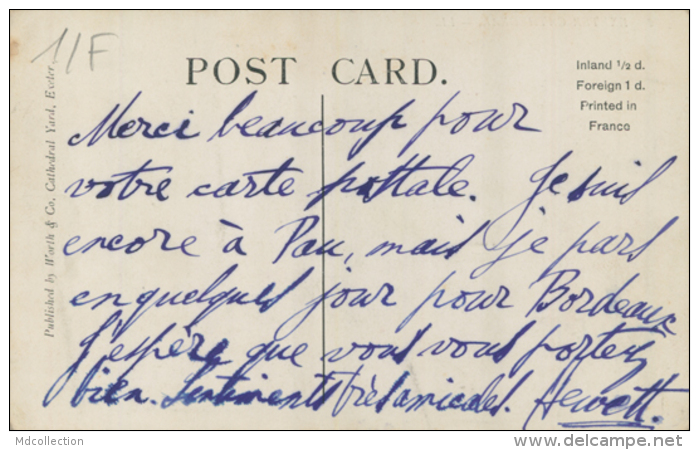 1/F
POST CARD.
Inland ½ d.
Foreign 1 d.
Printed in
France
Published by Worth & Co, Cathedral Yard, Exeter.
Merci beaucoup pour
votre carte postale. Je suis
encore à Pau, mais je pars
en quelques jour pour Bordeaux
J'espère que vous vous portez
bien. Sentiments très amicales. Hewett.
Mdcollection
delcampe.net